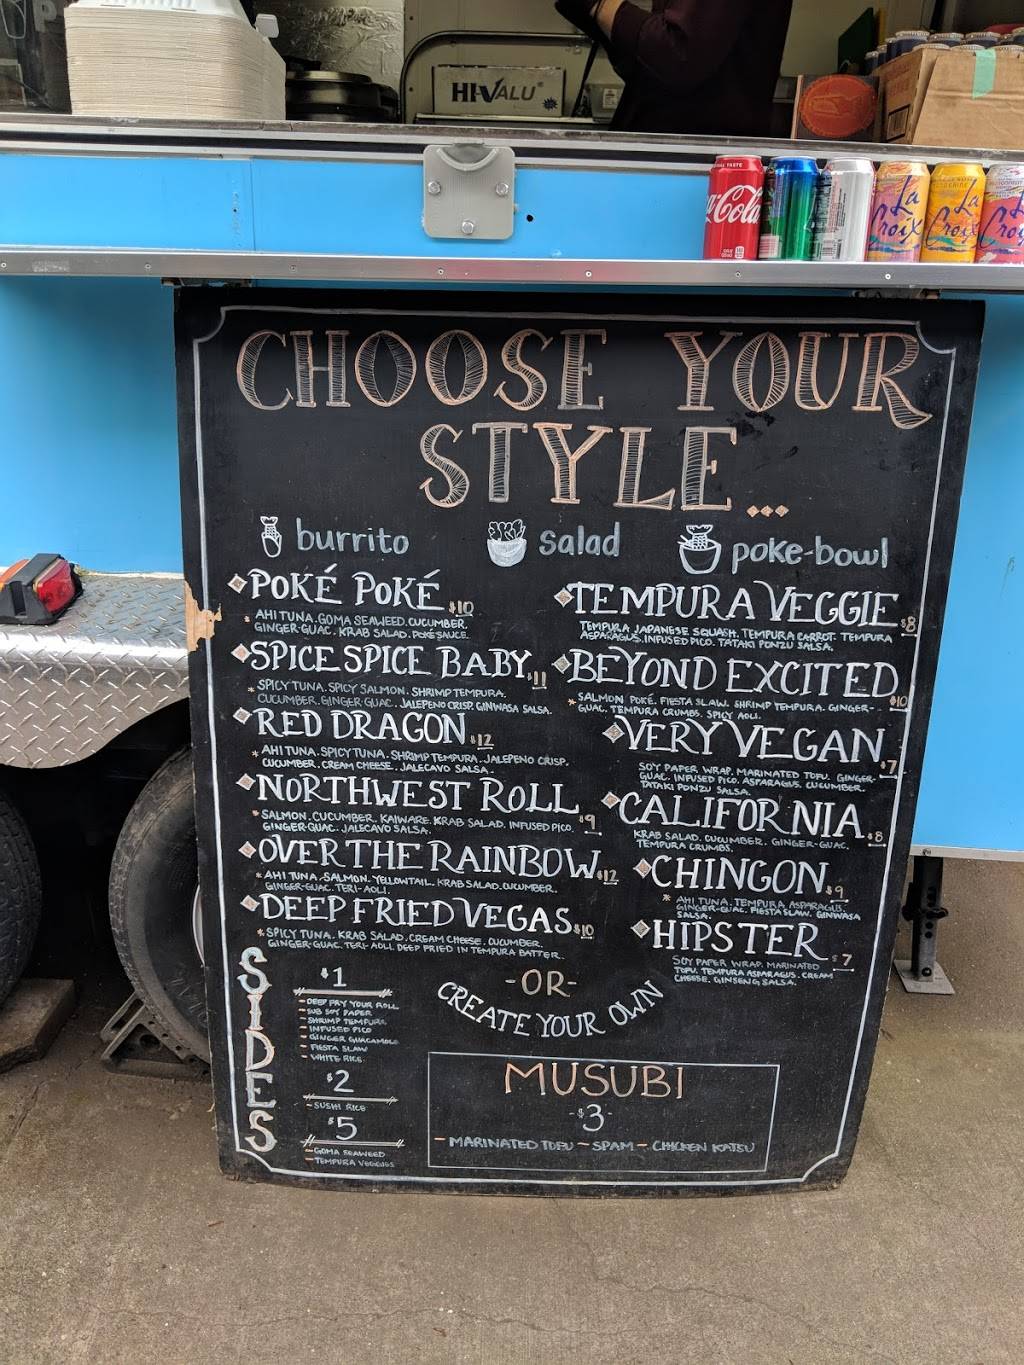 HI-VALU®
Coca-Cola
La Croix
La Croix
La Croix
CHOOSE YOUR
STYLE...
burrito salad poke-bowl
POKÉ POKÉ $10
* AHI TUNA. GOMA SEAWEED. CUCUMBER.
GINGER-GUAC. KRAB SALAD. POKÉ SAUCE.
SPICE SPICE BABY $11
* SPICY TUNA. SPICY SALMON. SHRIMP TEMPURA.
CUCUMBER. GINGER-GUAC. JALEPENO CRISP. GINWASA SALSA.
RED DRAGON $12
* AHI TUNA. SPICY TUNA. SHRIMP TEMPURA. JALEPENO CRISP.
CUCUMBER. CREAM CHEESE. JALECAVO SALSA.
NORTHWEST ROLL $9
* SALMON. CUCUMBER. KAIWARE. KRAB SALAD. INFUSED PICO.
GINGER-GUAC. JALECAVO SALSA.
OVER THE RAINBOW $12
* AHI TUNA. SALMON. YELLOWTAIL. KRAB SALAD. CUCUMBER.
GINGER-GUAC. TERI-AOLI.
DEEP FRIED VEGAS $10
* SPICY TUNA. KRAB SALAD. CREAM CHEESE. CUCUMBER.
GINGER-GUAC. TERI-AOLI. DEEP FRIED IN TEMPURA BATTER.
TEMPURA VEGGIE $8
TEMPURA JAPANESE SQUASH. TEMPURA CARROT. TEMPURA
ASPARAGUS. INFUSED PICO. TATAKI PONZU SALSA.
BEYOND EXCITED $10
* SALMON POKÉ. FIESTA SLAW. SHRIMP TEMPURA. GINGER-
GUAC. TEMPURA CRUMBS. SPICY AOLI.
VERY VEGAN $7
SOY PAPER WRAP. MARINATED TOFU. GINGER-
GUAC. INFUSED PICO. ASPARAGUS. CUCUMBER.
TATAKI PONZU SALSA.
CALIFORNIA $8
KRAB SALAD. CUCUMBER. GINGER-GUAC.
TEMPURA CRUMBS.
CHINGON $9
* AHI TUNA. TEMPURA ASPARAGUS.
GINGER-GUAC. FIESTA SLAW. GINWASA
SALSA.
HIPSTER $7
SOY PAPER WRAP. MARINATED
TOFU. TEMPURA ASPARAGUS. CREAM
CHEESE. GINSENG SALSA.
SIDES
$1
- DEEP FRY YOUR ROLL
- SUB SOY PAPER
- SHRIMP TEMPURA
- INFUSED PICO
- GINGER GUACAMOLE
- FIESTA SLAW
- WHITE RICE
$2
- SUSHI RICE
$5
- GOMA SEAWEED
- TEMPURA VEGGIES
-OR-
CREATE YOUR OWN
MUSUBI
-$3-
- MARINATED TOFU - SPAM - CHICKEN KATSU